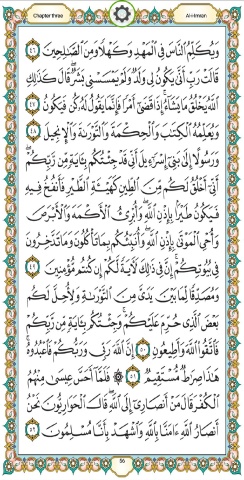 Chapter three
Al-Imran
وَيُكَلِّمُ النَّاسَ فِي الْمَهْدِ وَكَهْلًا وَمِنَ الصَّالِحِينَ ٤٦
قَالَتْ رَبِّ أَنَّى يَكُونُ لِي وَلَدٌ وَلَمْ يَمْسَسْنِي بَشَرٌ قَالَ كَذَلِكِ
اللَّهُ يَخْلُقُ مَا يَشَاءُ إِذَا قَضَى أَمْرًا فَإِنَّمَا يَقُولُ لَهُ كُنْ فَيَكُونُ ٤٧
وَيُعَلِّمُهُ الْكِتَابَ وَالْحِكْمَةَ وَالتَّوْرَاةَ وَالْإِنْجِيلَ ٤٨
وَرَسُولًا إِلَى بَنِي إِسْرَائِيلَ أَنِّي قَدْ جِئْتُكُمْ بِآيَةٍ مِنْ رَبِّكُمْ
أَنِّي أَخْلُقُ لَكُمْ مِنَ الطِّينِ كَهَيْئَةِ الطَّيْرِ فَأَنْفُخُ فِيهِ
فَيَكُونُ طَيْرًا بِإِذْنِ اللَّهِ وَأُبْرِئُ الْأَكْمَهَ وَالْأَبْرَصَ
وَأُحْيِ الْمَوْتَى بِإِذْنِ اللَّهِ وَأُنَبِّئُكُمْ بِمَا تَأْكُلُونَ وَمَا تَدَّخِرُونَ
فِي بُيُوتِكُمْ إِنَّ فِي ذَلِكَ لَآيَةً لَكُمْ إِنْ كُنْتُمْ مُؤْمِنِينَ ٤٩
وَمُصَدِّقًا لِمَا بَيْنَ يَدَيَّ مِنَ التَّوْرَاةِ وَلِأُحِلَّ لَكُمْ
بَعْضَ الَّذِي حُرِّمَ عَلَيْكُمْ وَجِئْتُكُمْ بِآيَةٍ مِنْ رَبِّكُمْ
فَاتَّقُوا اللَّهَ وَأَطِيعُونِ ٥٠ إِنَّ اللَّهَ رَبِّي وَرَبُّكُمْ فَاعْبُدُوهُ
هَذَا صِرَاطٌ مُسْتَقِيمٌ ٥١ ۞ فَلَمَّا أَحَسَّ عِيسَى مِنْهُمُ
الْكُفْرَ قَالَ مَنْ أَنْصَارِي إِلَى اللَّهِ قَالَ الْحَوَارِيُّونَ نَحْنُ
أَنْصَارُ اللَّهِ آمَنَّا بِاللَّهِ وَاشْهَدْ بِأَنَّا مُسْلِمُونَ ٥٢
56